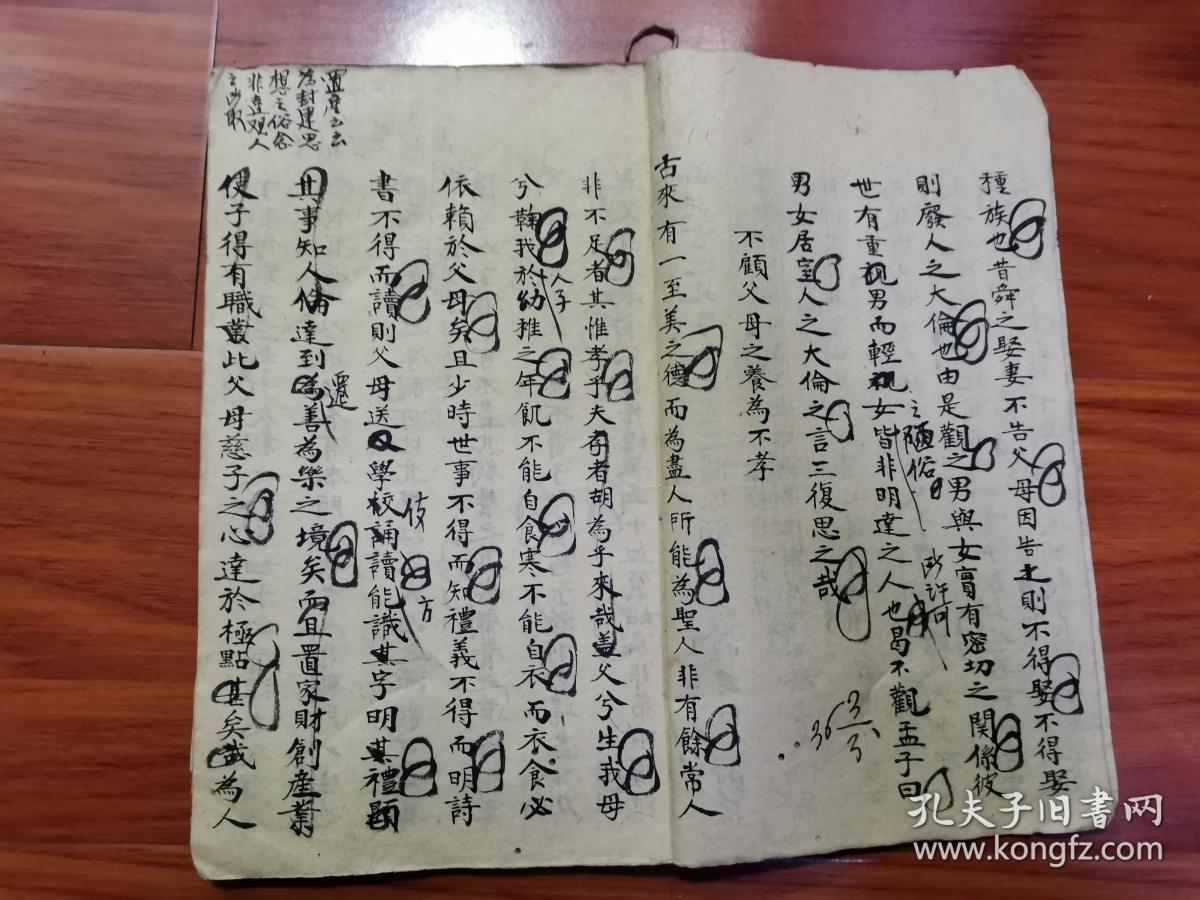 種族也昔舜之娶妻不告父母因告之則不得娶不得娶
則廢人之大倫也由是觀之男與女實有密切之関係彼
世有重視男而輕視女皆非明達之人也曷不觀孟子曰
之陋俗
所許可
男女居室人之大倫之言三復思之哉
36 3/3
不顧父母之養為不孝
古來有一至美之德而為盡人所能為聖人非有餘常人
非不足者其惟孝乎夫孝者胡為乎來哉盖父兮生我母
兮鞠我於幼稚之年飢不能自食寒不能自衣而衣食必
人子
依賴於父母矣且少時世事不得而知禮義不得而明詩
書不得而讀則父母送入學校誦讀能識其字明其禮題
使
方
其事知人倫達到為善為樂之境矣而且置家財創產業
還
使子得有職業此父母慈子之心達於極點甚矣哉為人
置產云云
為封建思
想之俗念
非達观人
之所取
孔夫子旧书网
www.kongfz.com